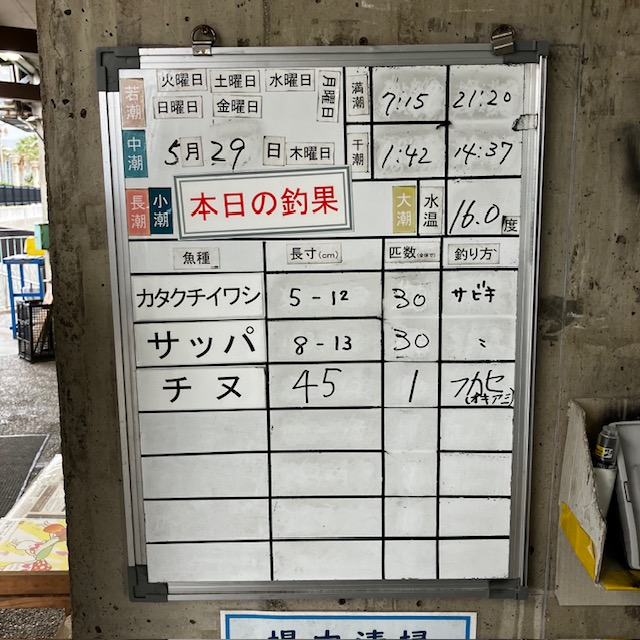 火曜日 土曜日 水曜日 月曜日
日曜日 金曜日
若潮
満潮 7:15 21:20
中潮 5月29日 木曜日 干潮 1:42 14:37
長潮 小潮 本日の釣果 大潮 水温 16.0度
魚種 長寸(cm) 匹数 釣り方
カタクチイワシ 5-12 30 サビキ
サッパ 8-13 30 〃
チヌ 45 1 フカセ
(オキアミ)